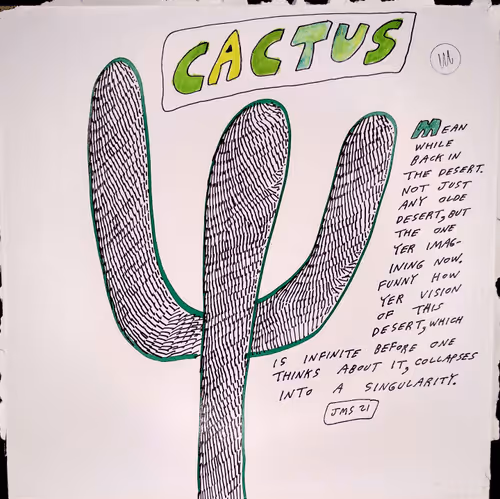 CACTUS
MEAN
WHILE
BACK IN
THE DESERT.
NOT JUST
ANY OLDE
DESERT, BUT
THE ONE
YER IMAG-
INING NOW.
FUNNY HOW
YER VISION
OF THIS
DESERT, WHICH
IS INFINITE BEFORE ONE
THINKS ABOUT IT, COLLAPSES
INTO A SINGULARITY.
JMS 21